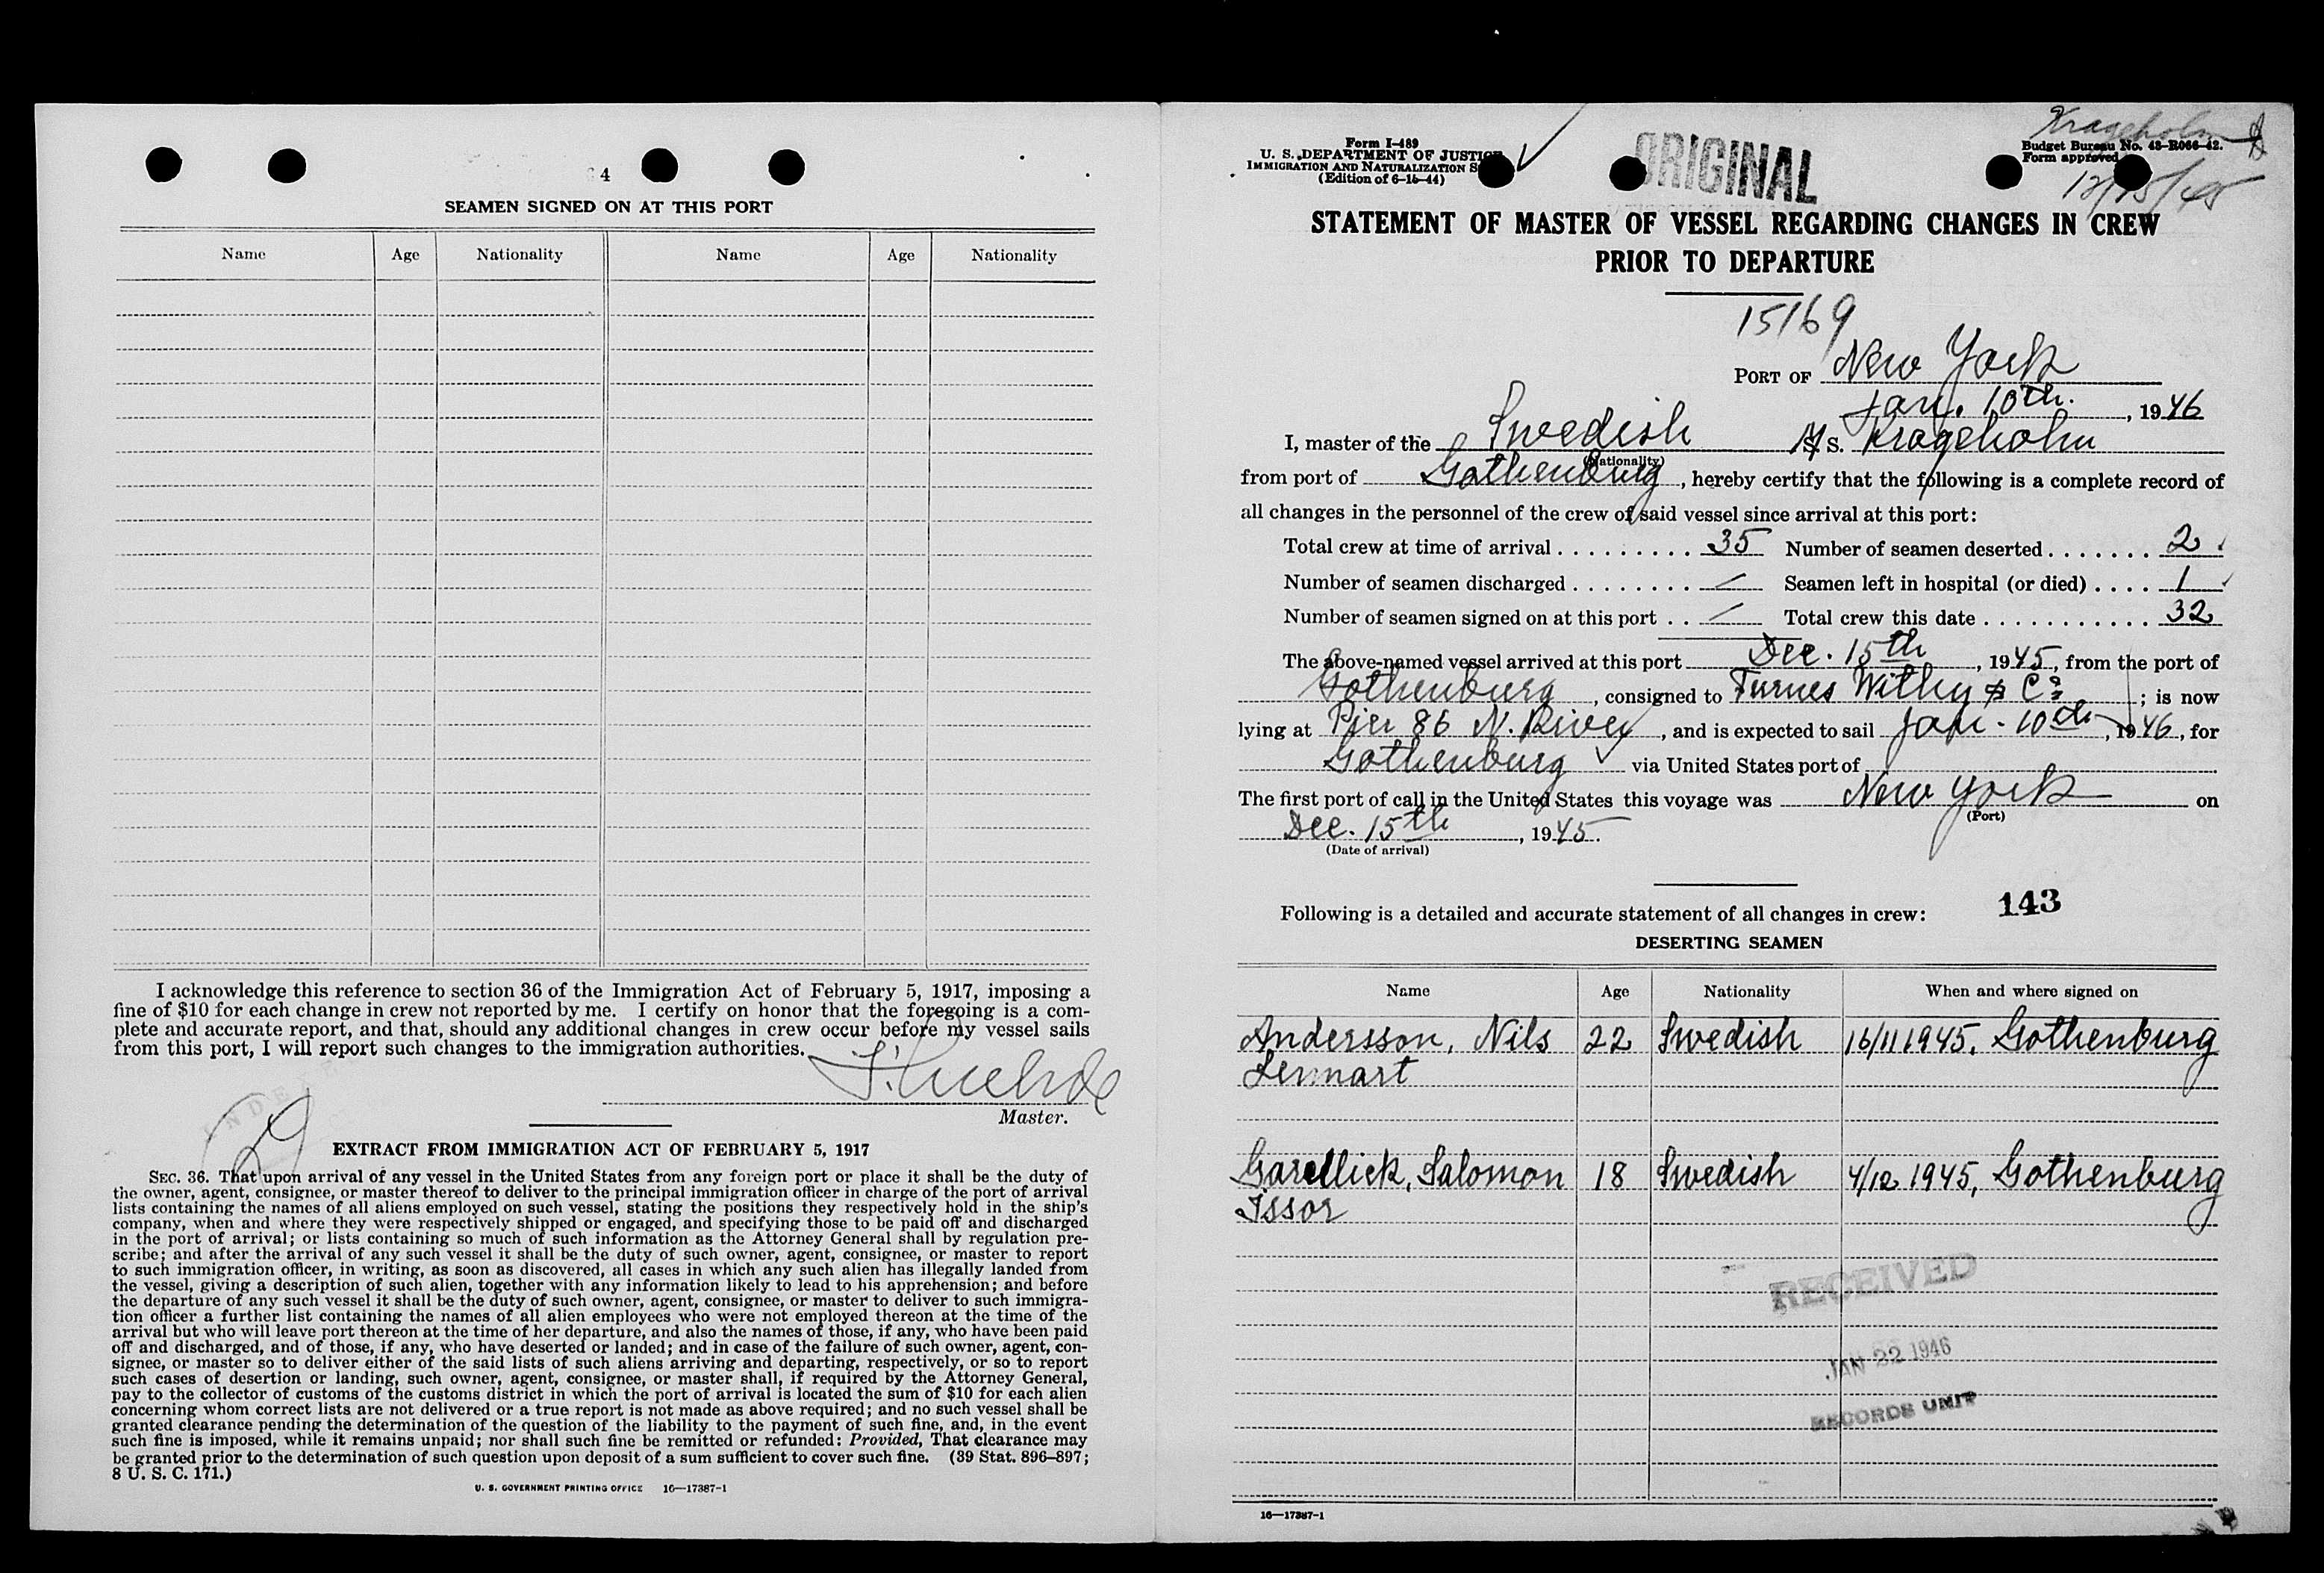 4
SEAMEN SIGNED ON AT THIS PORT
Name Age Nationality Name Age Nationality
I acknowledge this reference to section 36 of the Immigration Act of February 5, 1917, imposing a
fine of $10 for each change in crew not reported by me. I certify on honor that the foregoing is a com-
plete and accurate report, and that, should any additional changes in crew occur before my vessel sails
from this port, I will report such changes to the immigration authorities.
Master.
29
EXTRACT FROM IMMIGRATION ACT OF FEBRUARY 5, 1917
SEC. 36. That upon arrival of any vessel in the United States from any foreign port or place it shall be the duty of
the owner, agent, consignee, or master thereof to deliver to the principal immigration officer in charge of the port of arrival
lists containing the names of all aliens employed on such vessel, stating the positions they respectively hold in the ship's
company, when and where they were respectively shipped or engaged, and specifying those to be paid off and discharged
in the port of arrival; or lists containing so much of such information as the Attorney General shall by regulation pre-
scribe; and after the arrival of any such vessel it shall be the duty of such owner, agent, consignee, or master to report
to such immigration officer, in writing, as soon as discovered, all cases in which any such alien has illegally landed from
the vessel, giving a description of such alien, together with any information likely to lead to his apprehension; and before
the departure of any such vessel it shall be the duty of such owner, agent, consignee, or master to deliver to such immigra-
tion officer a further list containing the names of all alien employees who were not employed thereon at the time of the
arrival but who will leave port thereon at the time of her departure, and also the names of those, if any, who have been paid
off and discharged, and of those, if any, who have deserted or landed; and in case of the failure of such owner, agent, con-
signee, or master so to deliver either of the said lists of such aliens arriving and departing, respectively, or so to report
such cases of desertion or landing, such owner, agent, consignee, or master shall, if required by the Attorney General,
pay to the collector of customs of the customs district in which the port of arrival is located the sum of $10 for each alien
concerning whom correct lists are not delivered or a true report is not made as above required; and no such vessel shall be
granted clearance pending the determination of the question of the liability to the payment of such fine, and, in the event
such fine is imposed, while it remains unpaid; nor shall such fine be remitted or refunded: Provided, That clearance may
be granted prior to the determination of such question upon deposit of a sum sufficient to cover such fine. (39 Stat. 896–897;
8 U. S. C. 171.)
U. S. GOVERNMENT PRINTING OFFICE 16—17387-1
Form I-489
U. S. DEPARTMENT OF JUSTICE
IMMIGRATION AND NATURALIZATION S
(Edition of 6-15-44)
ORIGINAL
Krageholm
Budget Bureau No. 43-R066-42.
Form approved
12/15/45
STATEMENT OF MASTER OF VESSEL REGARDING CHANGES IN CREW
PRIOR TO DEPARTURE
15169
PORT OF New York
Jan. 10th., 1946
I, master of the Swedish M/S. Krageholm
(Nationality)
from port of Gothenburg, hereby certify that the following is a complete record of
all changes in the personnel of the crew of said vessel since arrival at this port:
Total crew at time of arrival . . . . . . . . . 35 Number of seamen deserted . . . . . . . 2
Number of seamen discharged . . . . . . . . / Seamen left in hospital (or died) . . . . 1
Number of seamen signed on at this port . . / Total crew this date . . . . . . . . . . . 32
The above-named vessel arrived at this port Dec. 15th, 1945, from the port of
Gothenburg, consigned to Furnes Withy & Co; is now
lying at Pier 86 N. River, and is expected to sail Jan. 10th, 1946, for
Gothenburg via United States port of
The first port of call in the United States this voyage was New York on
(Port)
Dec. 15th, 1945.
(Date of arrival)
Following is a detailed and accurate statement of all changes in crew: 143
DESERTING SEAMEN
Name Age Nationality When and where signed on
Andersson, Nils 22 Swedish 16/11 1945, Gothenburg
Lennart
Garellick, Salomon 18 Swedish 4/12 1945, Gothenburg
Issor
RECEIVED
JAN 22 1946
RECORDS UNIT
16—17387-1